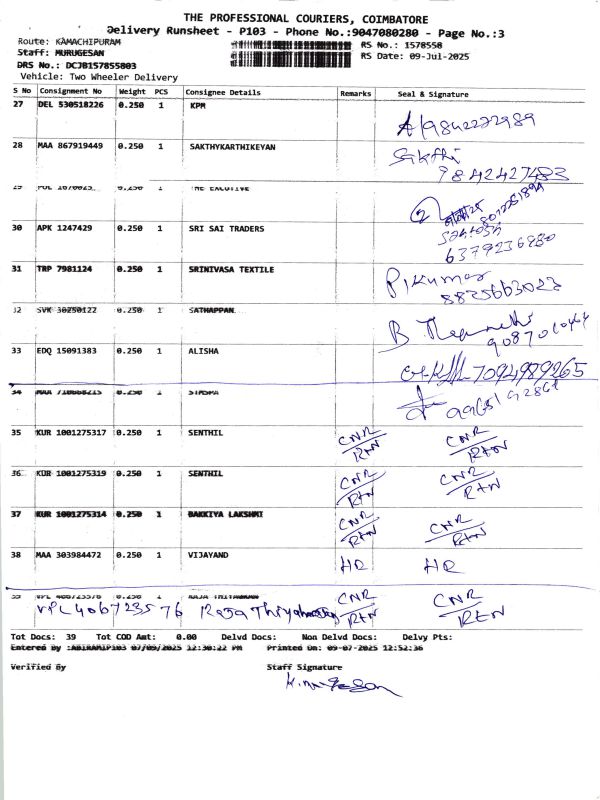 THE PROFESSIONAL COURIERS, COIMBATORE
Delivery Runsheet - P103 - Phone No.:9047080280 - Page No.:3
Route: KAMACHIPURAM
RS No.: 1578558
Staff: MURUGESAN
RS Date: 09-Jul-2025
DRS No.: DCJB157855803
Vehicle: Two Wheeler Delivery
S No Consignment No Weight PCS Consignee Details Remarks Seal & Signature
27 DEL 530518226 0.250 1 KPM
9842272989
28 MAA 867919449 0.250 1 SAKTHYKARTHIKEYAN
Sakthi
9842427483
29 0.250 1 THE EXECUTIVE
30 APK 1247429 0.250 1 SRI SAI TRADERS
6379236880
31 TRP 7981124 0.250 1 SRINIVASA TEXTILE
P/Kumar
8825663023
32 SVK 30250122 0.250 1 SATHAPPAN
B
33 EDQ 15091383 0.250 1 ALISHA
7094989265
34 MAA 0.250 1
35 KUR 1001275317 0.250 1 SENTHIL CNR/RTN CNR/RTN
36 KUR 1001275319 0.250 1 SENTHIL CNR/RTN CNR/RTN
37 KUR 1001275314 0.250 1 BAKKIYA LAKSHMI CNR/RTN CNR/RTN
38 MAA 303984472 0.250 1 VIJAYAND HR HR
39 VPL 406723576 0.250 1 RAJA THIYAGARAJAN CNR/RTN CNR/RTN
VPL406723576 Raja
Tot Docs: 39 Tot COD Amt: 0.00 Delvd Docs: Non Delvd Docs: Delvy Pts:
Entered By :ABIRAMIP103 07/09/2025 12:30:22 PM Printed On: 09-07-2025 12:52:36
Verified By Staff Signature